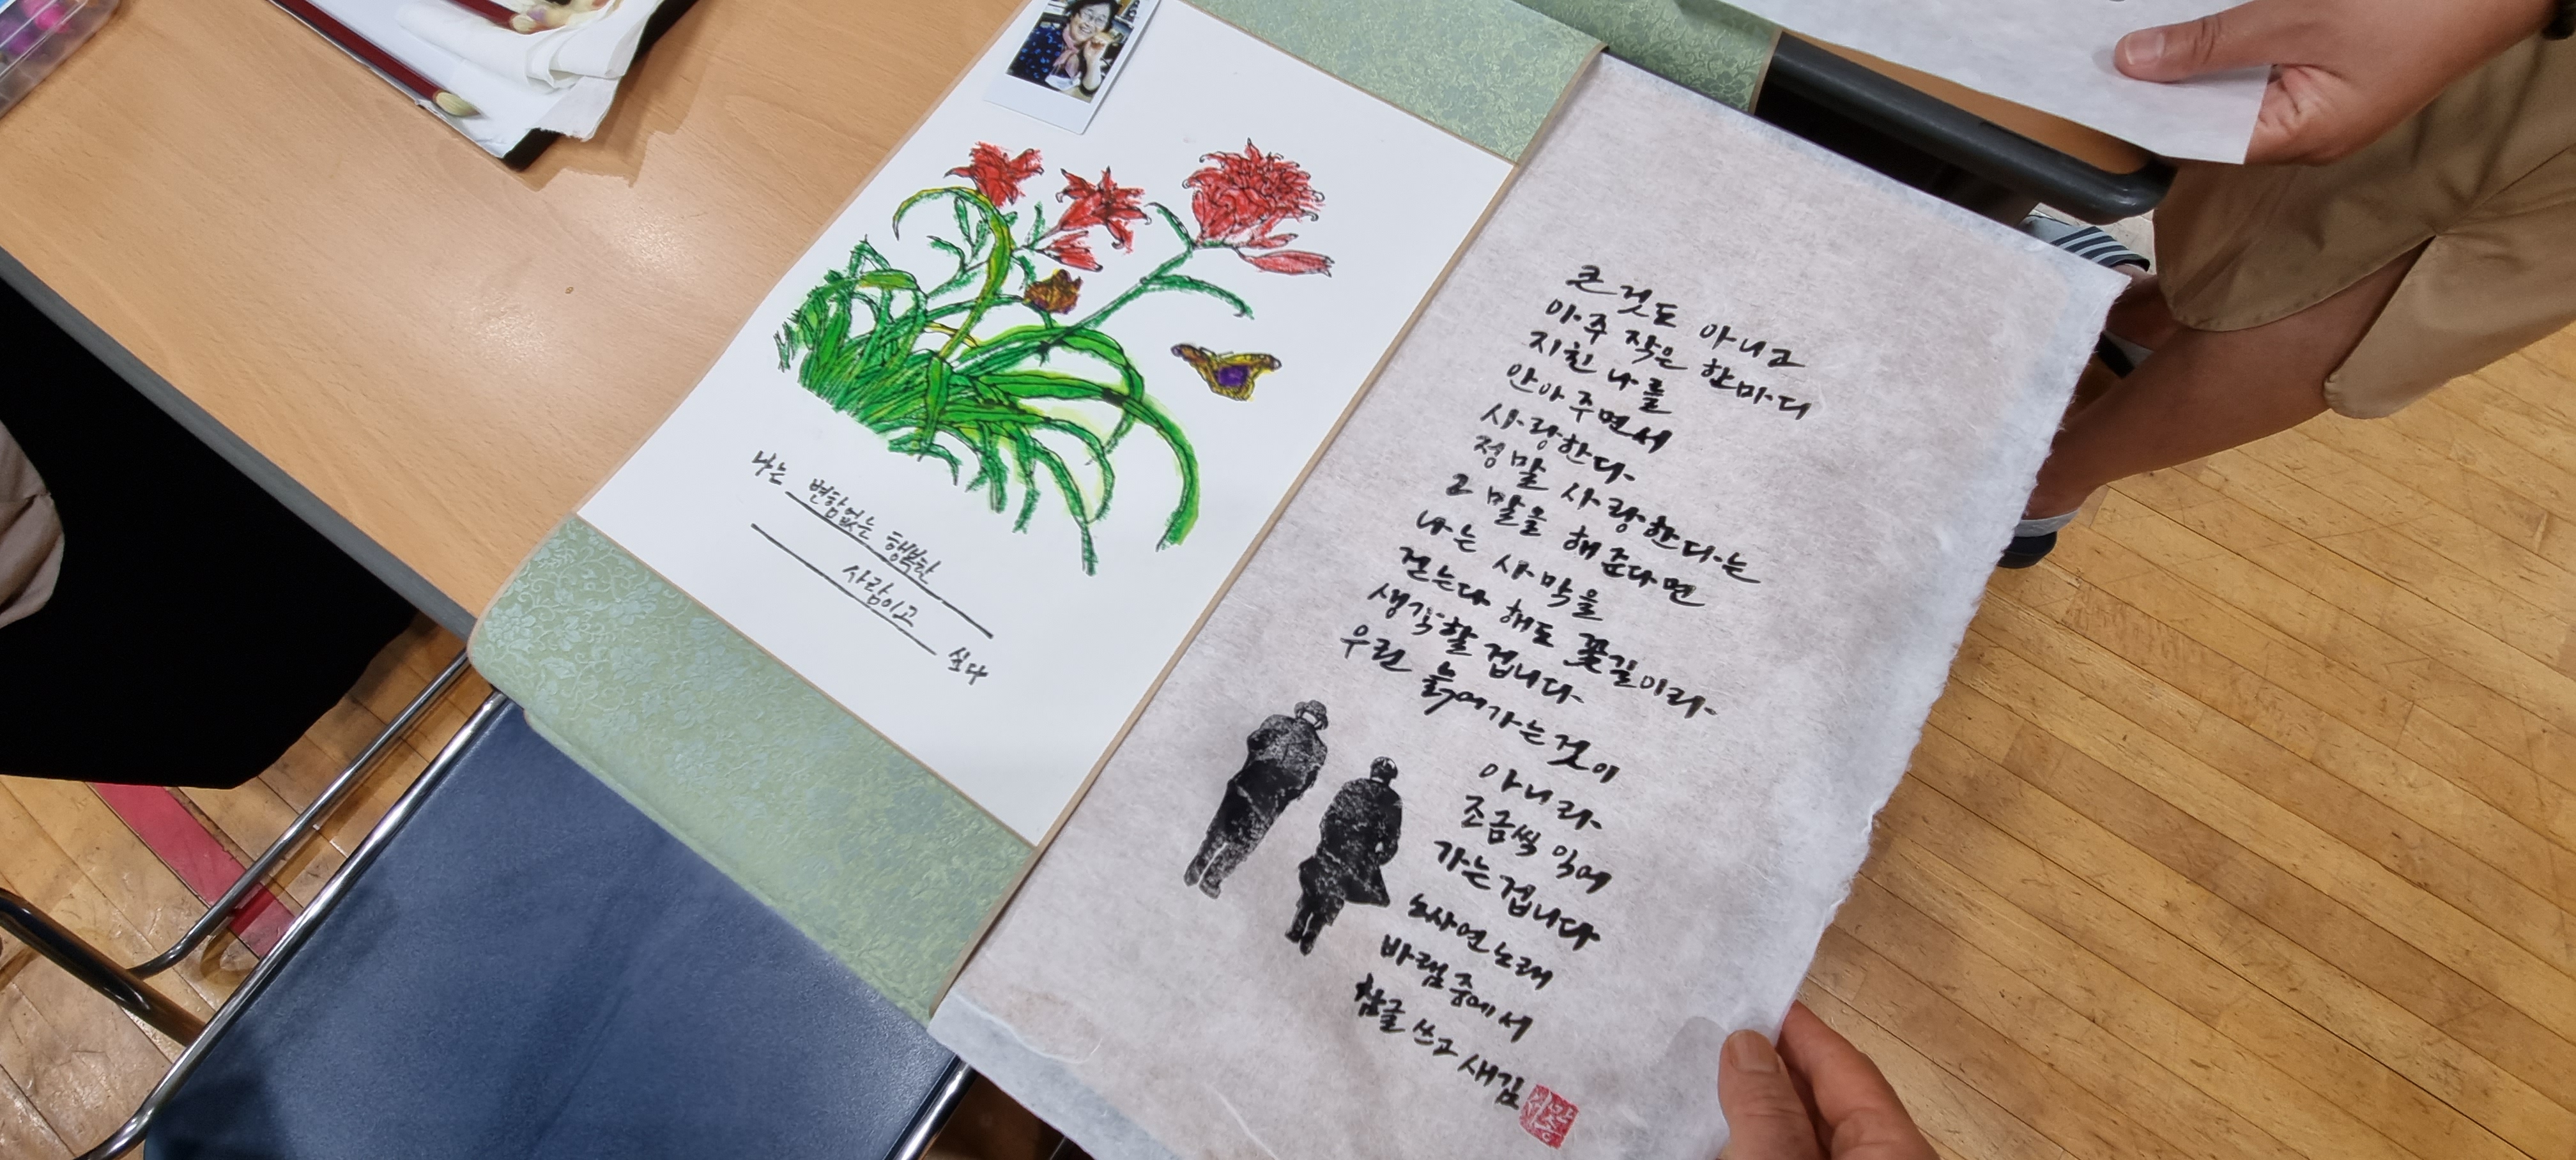 나는 변함없는 행복한
사람이고 싶다
큰 것도 아니고
아주 작은 한마디
지친 나를
안아 주면서
사랑한다
정말 사랑한다는
그 말을 해 준다면
나는 사막을
걷는다 해도 꽃길이라
생각할 겁니다
우린 늙어가는 것이
아니라
조금씩 익어
가는 겁니다
노사연 노래
바램 중에서
참글 쓰고 새김